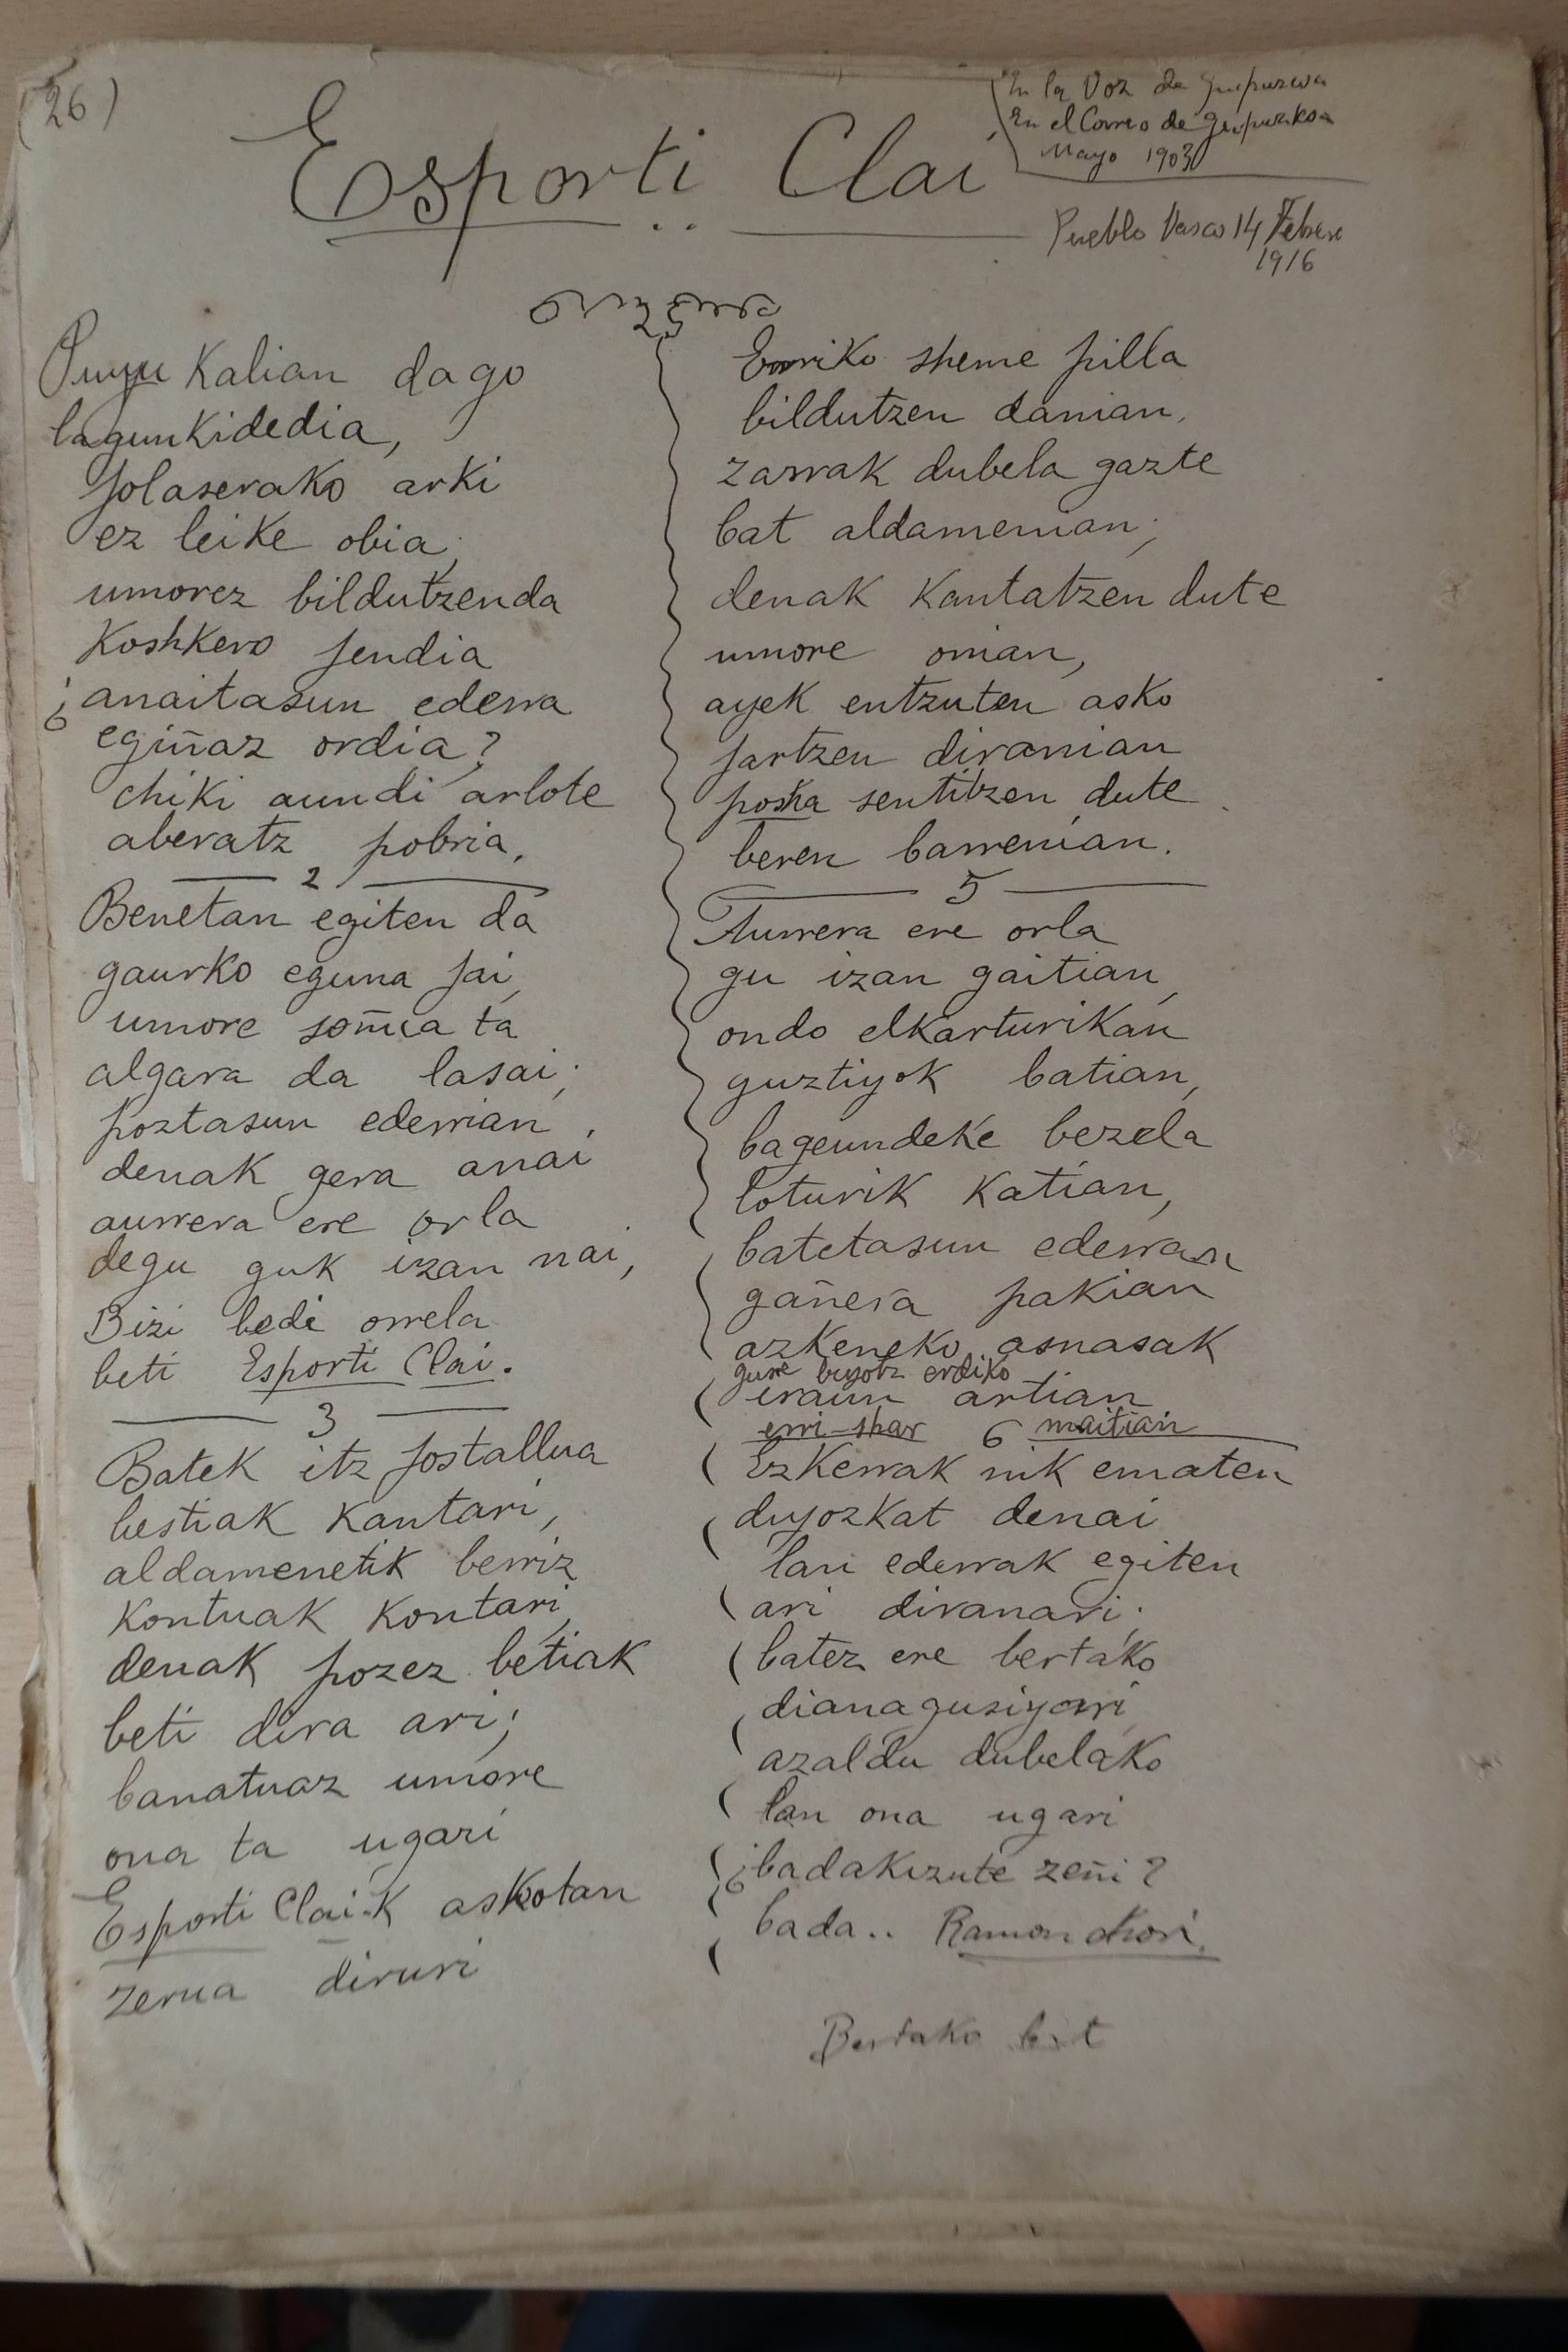 (26)
Esporti Clai
En la Voz de Guipuzcoa
En el Correo de Guipuzkoa
Mayo 1903
Pueblo Vasco 14 Febrero
1916
Puyu Kalian dago
lagunkidedia,
jolaserako arki
ez leike obia,
umorez bildutzenda
Koshkero jendia
¿anaitasun ederra
egiñaz ordia?
chiki aundi arlote
aberatz pobria,
2
Benetan egiten da
gaurko eguna jai,
umore soñua ta
algara da lasai;
poztasun ederrian,
denak gera anai
aurrera ere orla
degu guk izan nai,
Bizi bedi orrela
beti Esporti Clai.
3
Batek itz jostallua
bestiak kantari,
aldamenetik berriz
Kontuak Kontari,
denak pozez betiak
beti dira ari;
banatuaz umore
ona ta ugari
Esporti Clai-k askotan
zerua diruri
Erriko sheme pilla
bildutzen danian,
zarrak dubela gazte
bat aldamenian;
denak Kantatzen dute
umore onian,
ayek entzuten asko
jartzen diranian
posha sentitzen dute
beren barrenian.
5
Aurrera ere orla
gu izan gaitian,
ondo elkarturikan
guztiyok batian,
bageundeke bezela
loturik Katian,
batetasun ederran
gañera pakian
azkeneko asnasak
gure biyotz erdiko
iraun artian
erri-shar maitian
6
Ezkerrak nik ematen
diyozkat denai
lan ederrak egiten
ari diranari;
batez ere bertako
dianagusiyari,
azaldu dubelako
lan ona ugari
¿badakizute zeñi?
bada.. Ramon chori.
Bertako bat